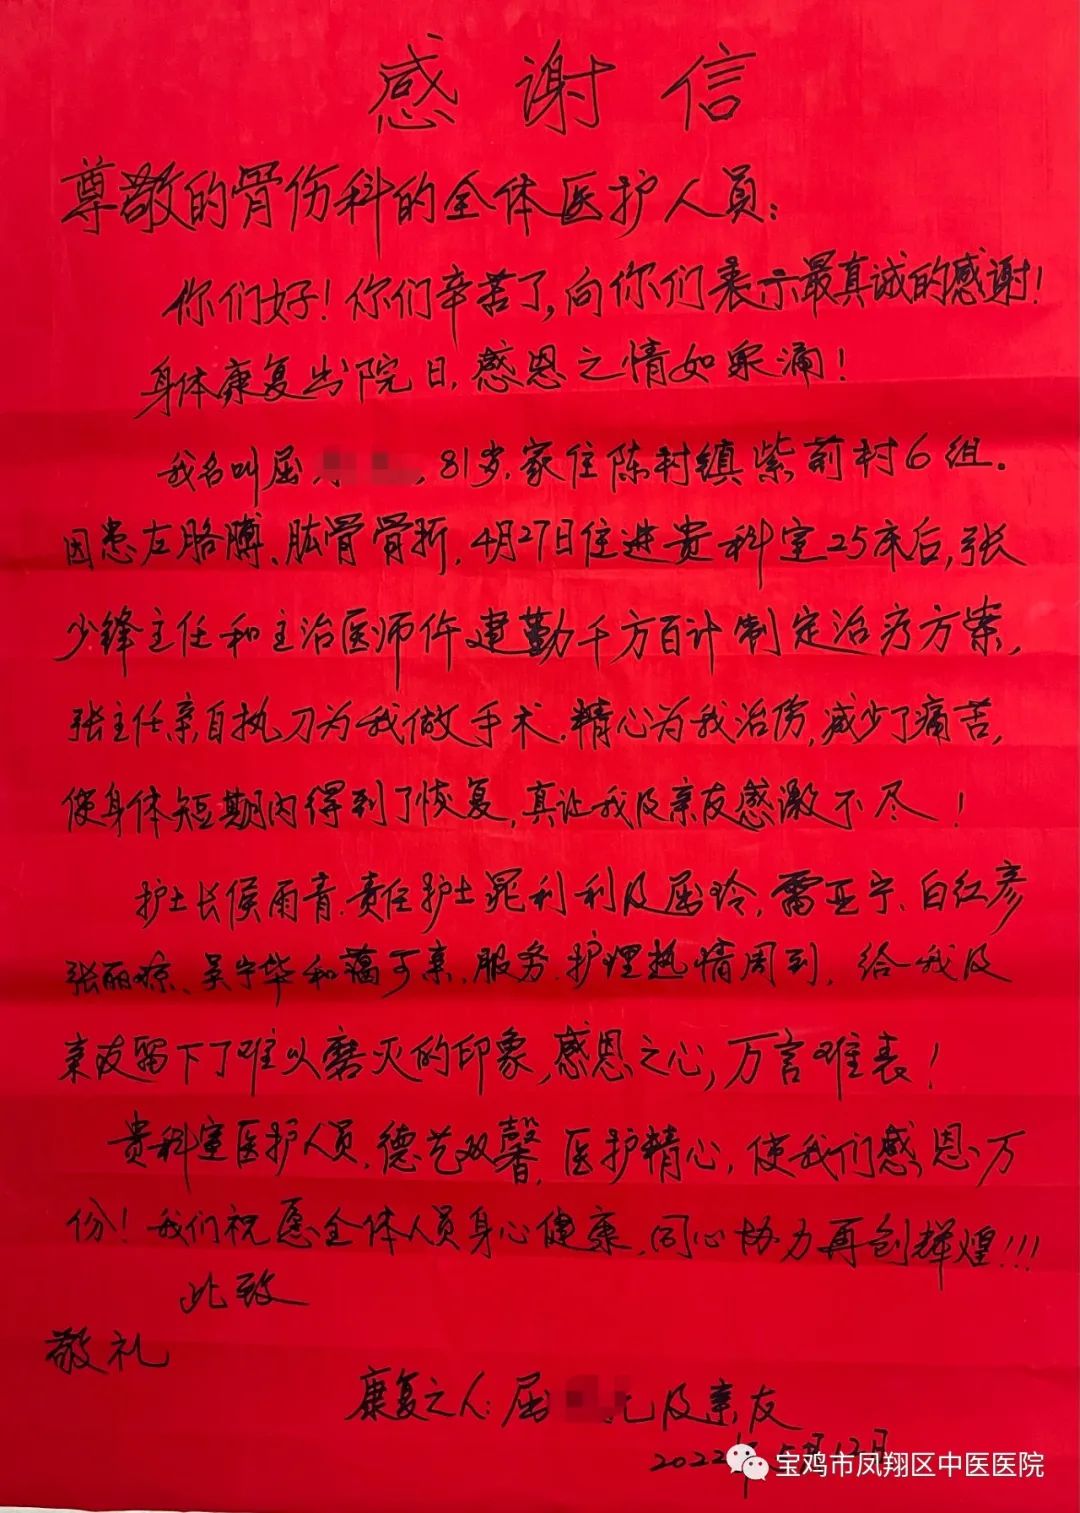 感谢信
尊敬的骨伤科的全体医护人员：
你们好！你们辛苦了，向你们表示最真诚的感谢！
身体康复出院日，感恩之情如泉涌！
我名叫屈，81岁，家住陈村镇紫荆村6组。
因患左胳膊、肱骨骨折，4月27日住进贵科室25床后，张
少锋主任和主治医师仵建勤千方百计制定治疗方案，
张主任亲自执刀为我做手术，精心为我治伤，减少了痛苦，
使身体短期内得到了恢复，真让我及亲友感激不尽！
护士长侯雨青、责任护士晁利利及屈玲，雷亚宁、白红彦
张丽琼、吴宁华和蔼可亲，服务、护理热情周到，给我及
亲友留下了难以磨灭的印象，感恩之心，万言难表！
贵科室医护人员，德艺双馨，医护精心，使我们感恩万
份！我们祝愿全体人员身心健康，同心协力再创辉煌!!!
此致
敬礼
康复之人：屈 元及亲友
2022年5月12日
宝鸡市凤翔区中医医院